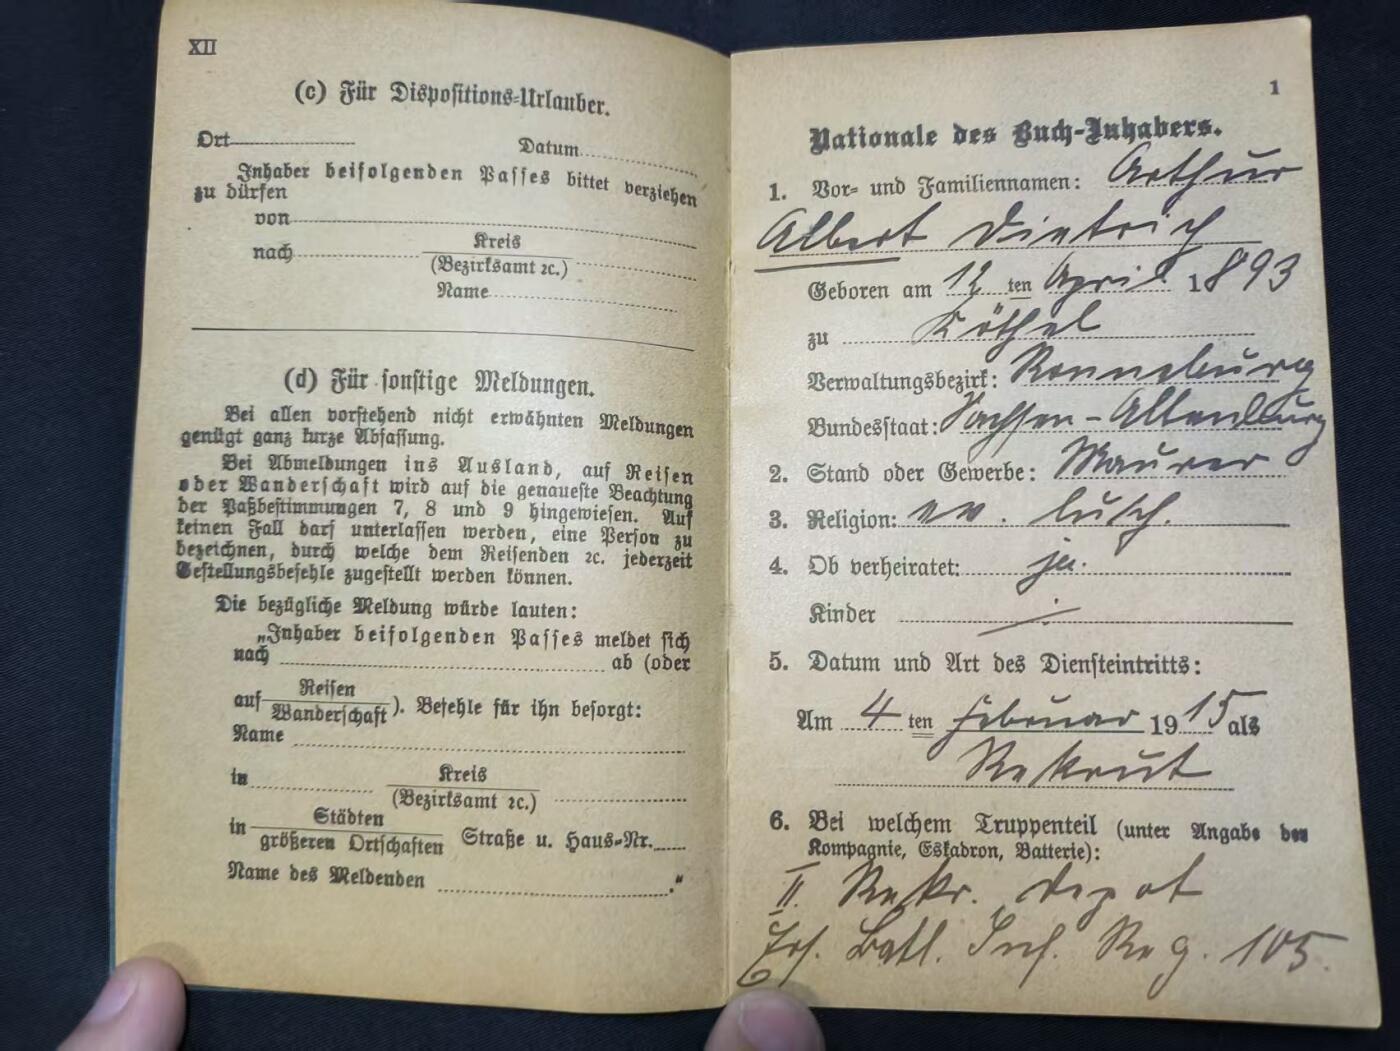 XII
(c) Für Dispositions-Urlauber.
Ort
Datum
Inhaber beifolgenden Passes bittet verziehen
zu dürfen
von
nach Kreis
(Bezirksamt ꝛc.)
Name
(d) Für sonstige Meldungen.
Bei allen vorstehend nicht erwähnten Meldungen
genügt ganz kurze Abfassung.
Bei Abmeldungen ins Ausland, auf Reisen
oder Wanderschaft wird auf die genaueste Beachtung
der Paßbestimmungen 7, 8 und 9 hingewiesen. Auf
keinen Fall darf unterlassen werden, eine Person zu
bezeichnen, durch welche dem Reisenden ꝛc. jederzeit
Gestellungsbefehle zugestellt werden können.
Die bezügliche Meldung würde lauten:
„Inhaber beifolgenden Passes meldet sich
nach ab (oder
auf Reisen
Wanderschaft ). Befehle für ihn besorgt:
Name
in Kreis
(Bezirksamt ꝛc.)
in Städten
größeren Ortschaften Straße u. Haus-Nr.
Name des Meldenden ."
1
Nationale des Buch-Inhabers.
1. Vor- und Familiennamen: Arthur
Albert Dietrich
Geboren am 12 ten April 1893
zu Köthel
Verwaltungsbezirk: Ronneburg
Bundesstaat: Sachsen-Altenburg
2. Stand oder Gewerbe: Maurer
3. Religion: ev. luth.
4. Ob verheiratet: ja.
Kinder
5. Datum und Art des Diensteintritts:
Am 4 ten Februar 1915 als
Rekrut
6. Bei welchem Truppenteil (unter Angabe der
Kompagnie, Eskadron, Batterie):
II. Rekr. Depot
Ers. Batl. Inf. Reg. 105.